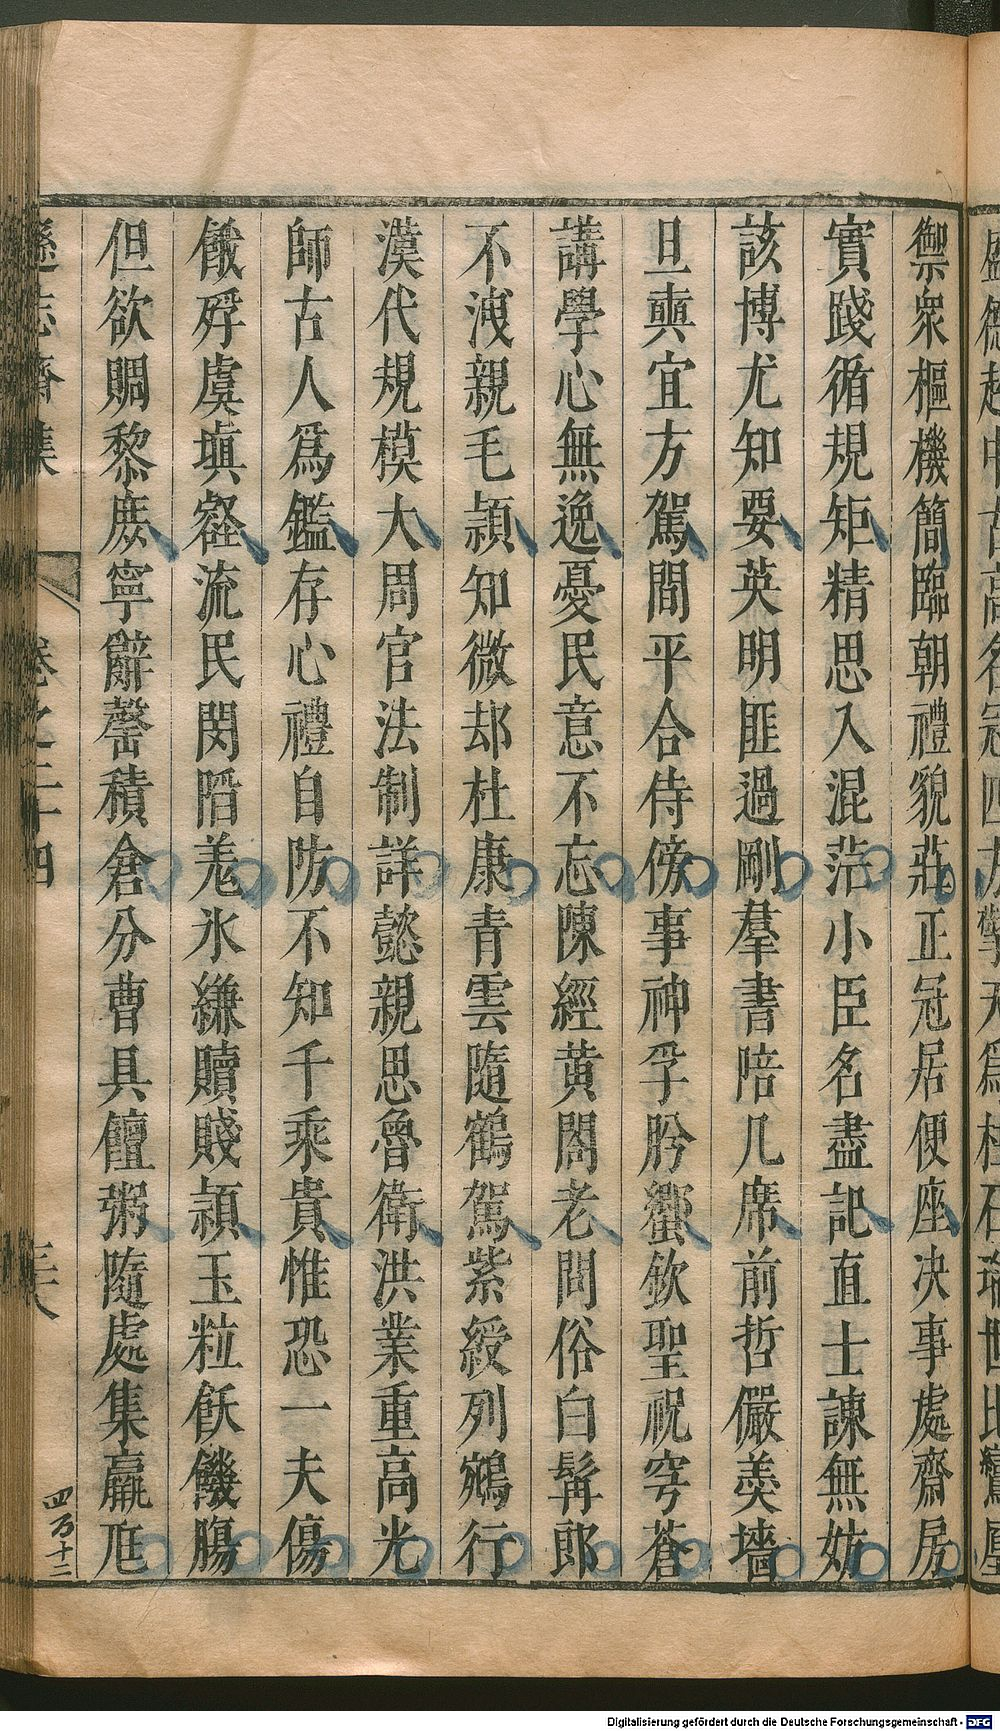 御衆樞機簡臨朝禮貌莊正冠居便座决事處齋房
實踐循規矩精思入混茫小臣名盡記直士諫無妨
該博尤知要英明匪過剛羣書陪几席前哲儼羮墻
旦奭宜方駕間平合侍傍事神孚肸蠁欽聖祝穹蒼
講學心無逸憂民意不忘陳經黄閤老問俗白髯郎
不洩親毛穎知微却杜康青雲隨鶴駕紫綬列鵷行
漢代規模大周官法制詳懿親思魯衛洪業重高光
師古人爲鑑存心禮自防不知千乘貴惟恐一夫傷
餓殍虞塡壑流民閔陷羗氷縑贖賤穎玉粒飫饑腸
但欲賙黎庶寧辭罄積倉分曹具饘粥隨處集羸尫
遜志齋集 卷之二十四 三十八
四万十二
Digitalisierung gefördert durch die Deutsche Forschungsgemeinschaft - DFG